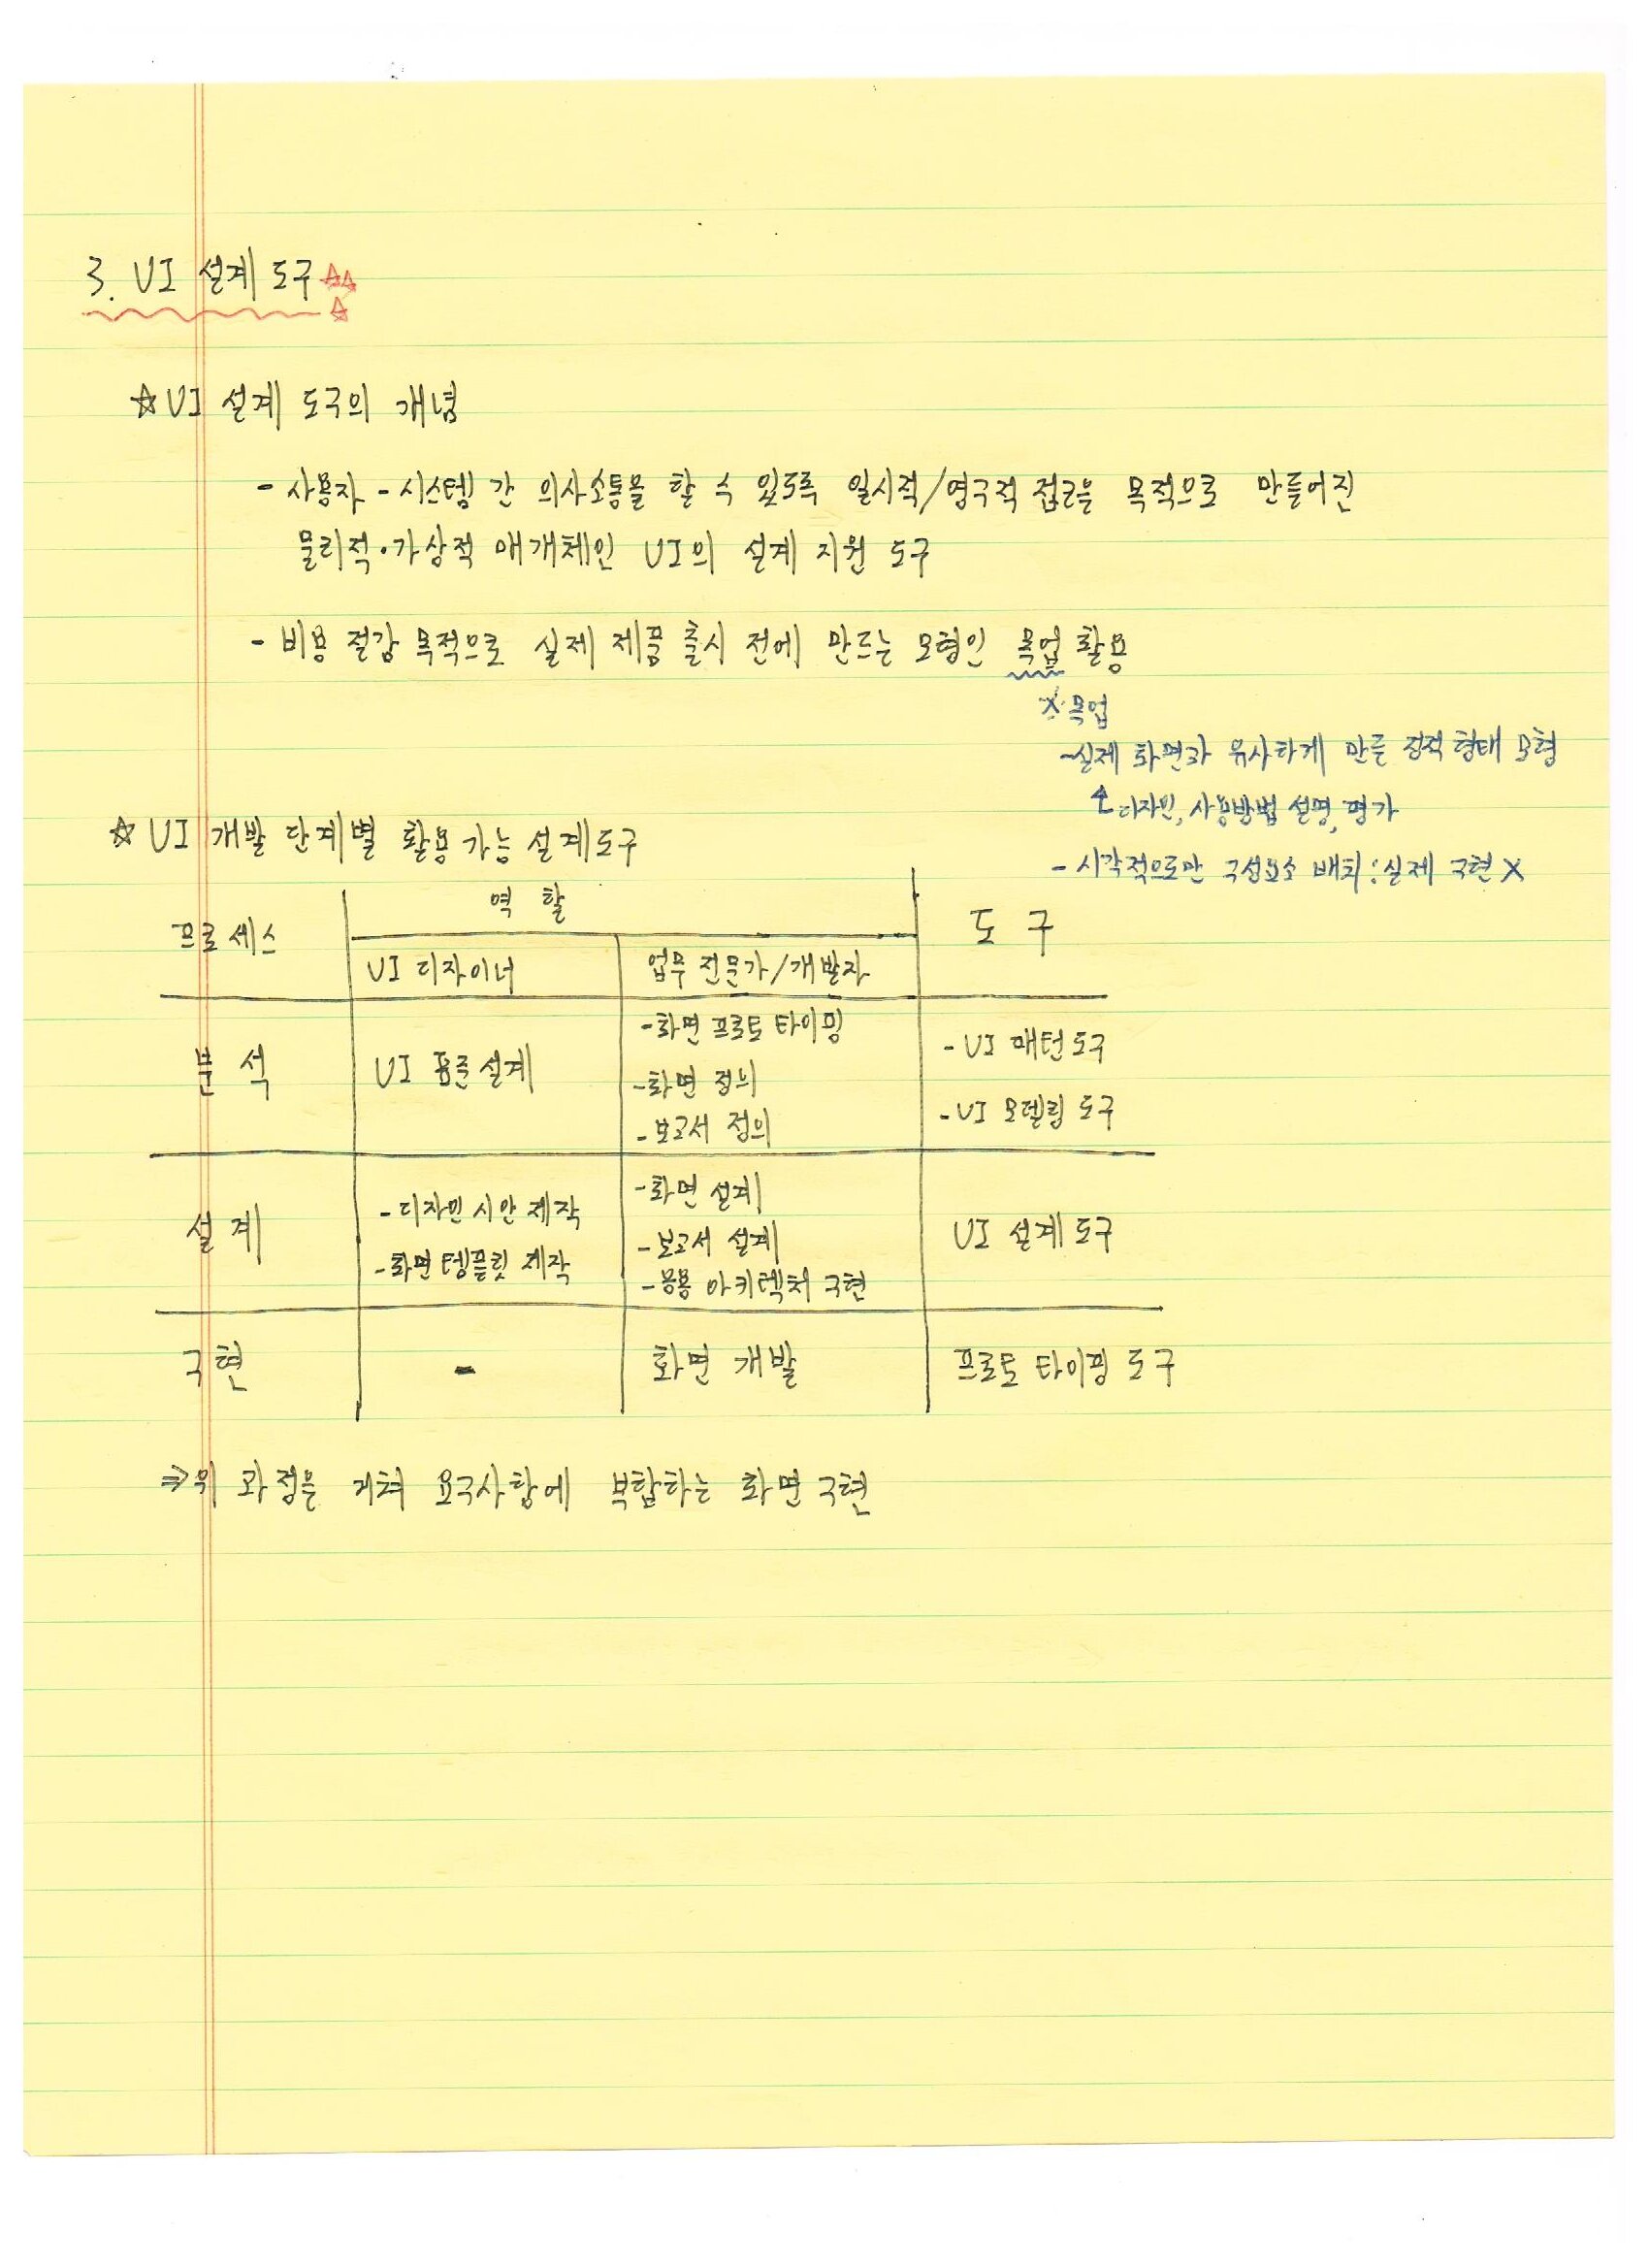 3. UI 설계 도구 ☆☆☆
☆ UI 설계 도구의 개념
- 사용자 - 시스템 간 의사소통을 할 수 있도록 일시적/영구적 접근을 목적으로 만들어진
물리적·가상적 매개체인 UI의 설계 지원 도구
- 비용 절감 목적으로 실제 제품 출시 전에 만드는 모형인 목업 활용
※ 목업
- 실제 화면과 유사하게 만든 정적 형태 모형
↑ 디자인, 사용방법 설명, 평가
- 시각적으로만 구성요소 배치 : 실제 구현 X
☆ UI 개발 단계별 활용 가능 설계도구
프로세스 역 할 도 구
UI 디자이너 업무 전문가/개발자
분 석 UI 표준 설계
- 화면 프로토 타이핑
- 화면 정의
- 보고서 정의
- UI 패턴 도구
- UI 모델링 도구
설 계
- 디자인 시안 제작
- 화면 템플릿 제작
- 화면 설계
- 보고서 설계
- 응용 아키텍처 구현
UI 설계 도구
구 현 - 화면 개발 프로토 타이핑 도구
⇒ 위 과정을 거쳐 요구사항에 부합하는 화면 구현